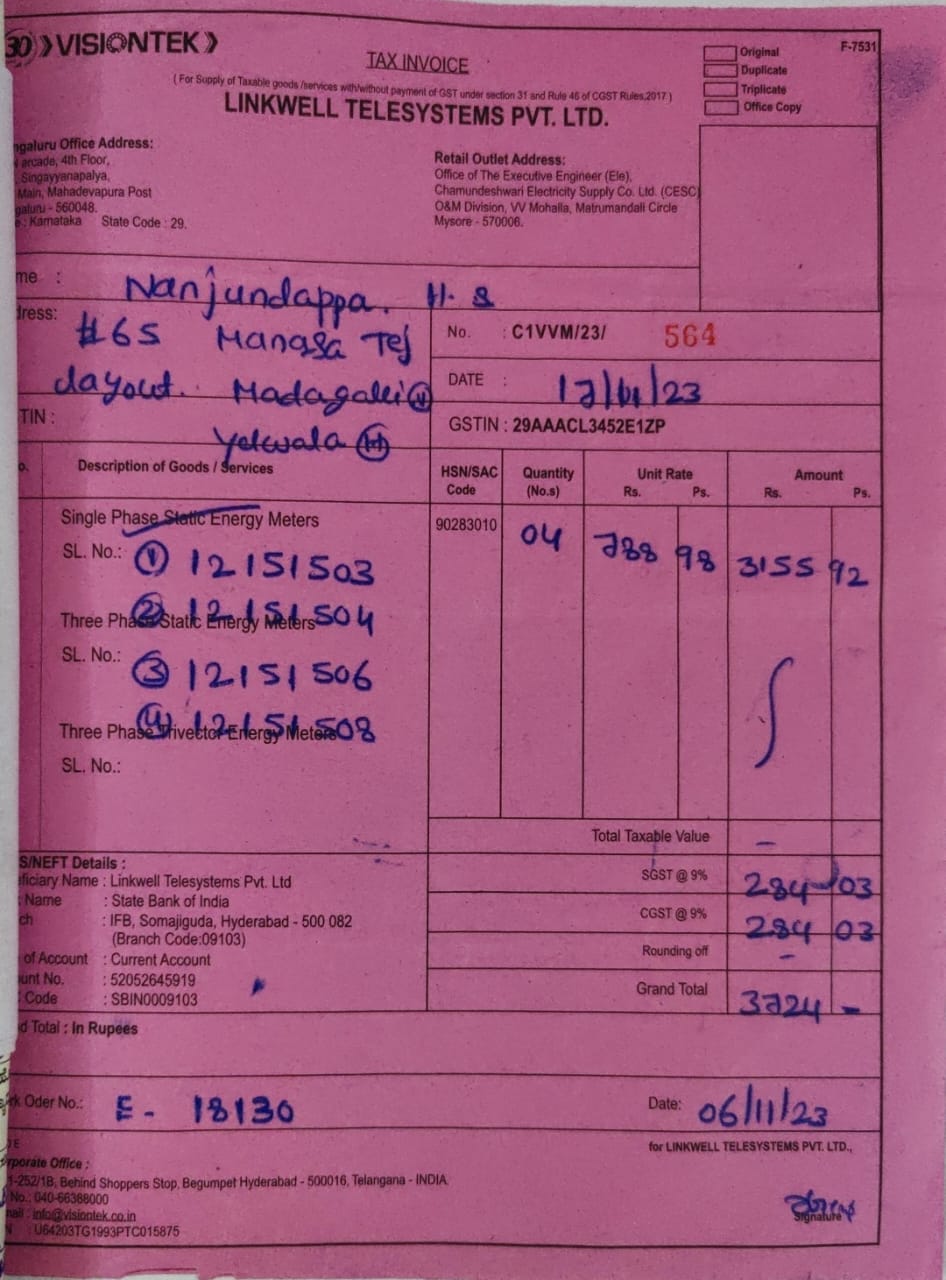 30 VISIONTEK
F-7531
TAX INVOICE
Original
Duplicate
Triplicate
Office Copy
( For Supply of Taxable goods /services with/without payment of GST under section 31 and Rule 46 of CGST Rules,2017 )
LINKWELL TELESYSTEMS PVT. LTD.
ngaluru Office Address:
arcade, 4th Floor,
Singayyanapalya,
Main, Mahadevapura Post
galuru - 560048.
e : Karnataka State Code : 29.
Retail Outlet Address:
Office of The Executive Engineer (Ele),
Chamundeshwari Electricity Supply Co. Ltd. (CESC)
O&M Division, VV Mohalla, Matrumandali Circle
Mysore - 570006.
me : Nanjundappa. H. S
dress: #65 Manasa Tej
layout. Madagalli (V)
Yelwala (H)
TIN :
No. : C1VVM/23/ 564
DATE : 17/11/23
GSTIN : 29AAACL3452E1ZP
o. Description of Goods / Services HSN/SAC Code Quantity (No.s) Unit Rate Rs. Ps. Amount Rs. Ps.
Single Phase Static Energy Meters 90283010 04 788 98 3155 92
SL. No.: 1 12151503
2 12151504
Three Phase Static Energy Meters
SL. No.: 3 12151506
4 12151508
Three Phase Trivector Energy Meters
SL. No.:
Total Taxable Value -
SGST @ 9% 284 03
CGST @ 9% 284 03
Rounding off -
Grand Total 3724 -
S/NEFT Details :
ficiary Name : Linkwell Telesystems Pvt. Ltd
Name : State Bank of India
ch : IFB, Somajiguda, Hyderabad - 500 082
(Branch Code:09103)
of Account : Current Account
unt No. : 52052645919
Code : SBIN0009103
d Total : In Rupees
rk Oder No.: E - 18130 Date: 06/11/23
for LINKWELL TELESYSTEMS PVT. LTD.,
rporate Office :
1-252/1B, Behind Shoppers Stop, Begumpet Hyderabad - 500016, Telangana - INDIA.
No.: 040-66388000
mail : info@visiontek.co.in
N : U64203TG1993PTC015875
Signature